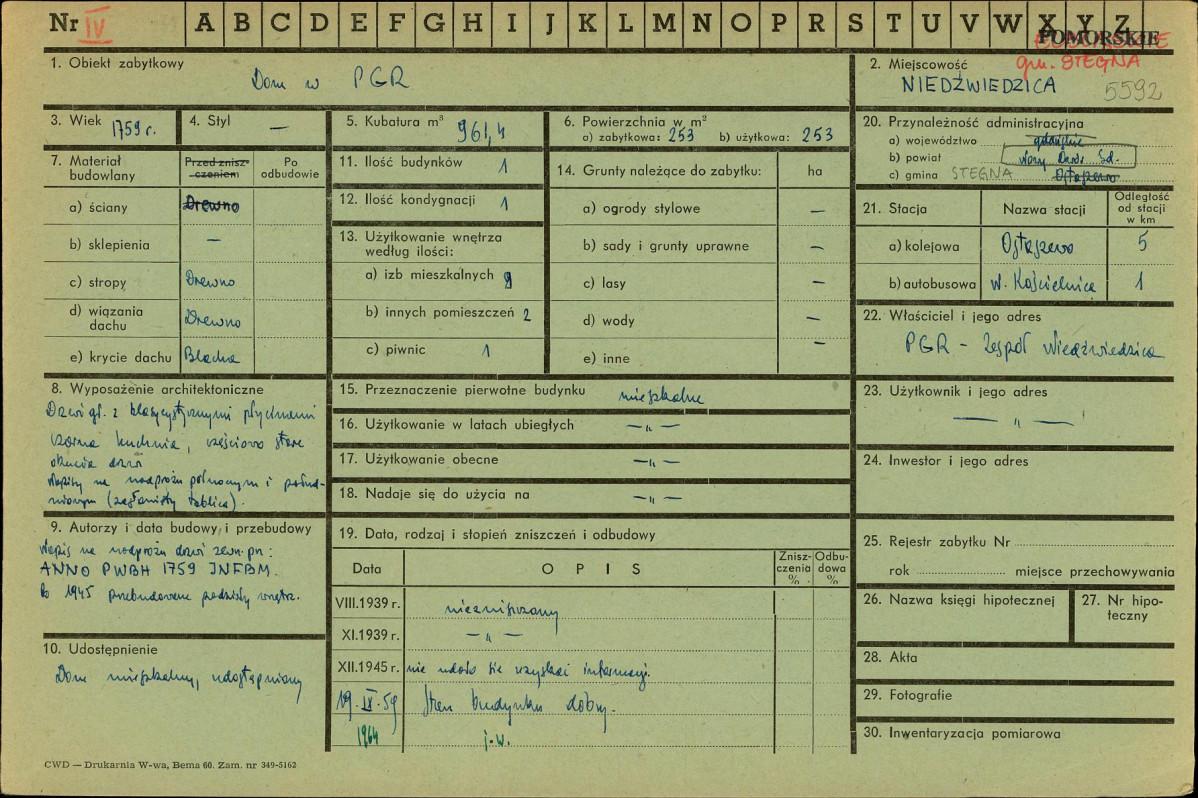 Nr IV A B C D E F G H I J K L M N O P R S T U V W X Y Z
POMORSKIE
gm. STEGNA
1. Obiekt zabytkowy
Dom w PGR
2. Miejscowość
NIEDŹWIEDZICA
5592
3. Wiek 1759 r.
4. Styl —
5. Kubatura m³ 961,4
6. Powierzchnia w m²
a) zabytkowa: 253 b) użytkowa: 253
20. Przynależność administracyjna
a) województwo gdańskie
b) powiat Nowy Dwór Gd.
c) gmina STEGNA Ostaszewo
7. Materiał budowlany
Przed zniszczeniem
Po odbudowie
a) ściany Drewno
b) sklepienia —
c) stropy Drewno
d) wiązania dachu Drewno
e) krycie dachu Blacha
11. Ilość budynków 1
12. Ilość kondygnacji 1
13. Użytkowanie wnętrza
według ilości:
a) izb mieszkalnych
b) innych pomieszczeń 2
c) piwnic 1
14. Grunty należące do zabytku: ha
a) ogrody stylowe —
b) sady i grunty uprawne —
c) lasy —
d) wody —
e) inne —
21. Stacja
Nazwa stacji
Odległość
od stacji
w km
a) kolejowa Ostaszewo 5
b) autobusowa N. Kościelnica 1
22. Właściciel i jego adres
PGR – Zespół Niedźwiedzica
8. Wyposażenie architektoniczne
Drzwi gł. z klasycystycznymi płycinami
czarna kuchnia, częściowo stare
okucia drzwi
Napisy na nadprożu północnym i połud-
niowym (zasłonięty tablicą).
15. Przeznaczenie pierwotne budynku mieszkalne
16. Użytkowanie w latach ubiegłych — „ —
17. Użytkowanie obecne — „ —
18. Nadaje się do użycia na — „ —
23. Użytkownik i jego adres
— „ —
24. Inwestor i jego adres
9. Autorzy i data budowy i przebudowy
Napis na nadprożu drzwi zewn. pn:
ANNO PWBH 1759 INFBM.
Po 1945 przebudowano podziały wnętrz.
19. Data, rodzaj i stopień zniszczeń i odbudowy
Data
O P I S
Zniszczenia %
Odbudowa %
VIII.1939 r. niezniszczony
XI.1939 r. — „ —
XII.1945 r. nie udało się uzyskać informacji.
19.IX.59 Stan budynku dobry.
1964 j.w.
25. Rejestr zabytku Nr
rok miejsce przechowywania
26. Nazwa księgi hipotecznej
27. Nr hipoteczny
10. Udostępnienie
Dom mieszkalny, udostępniony
28. Akta
29. Fotografie
30. Inwentaryzacja pomiarowa
CWD — Drukarnia W-wa, Bema 60. Zam. nr 349-5162